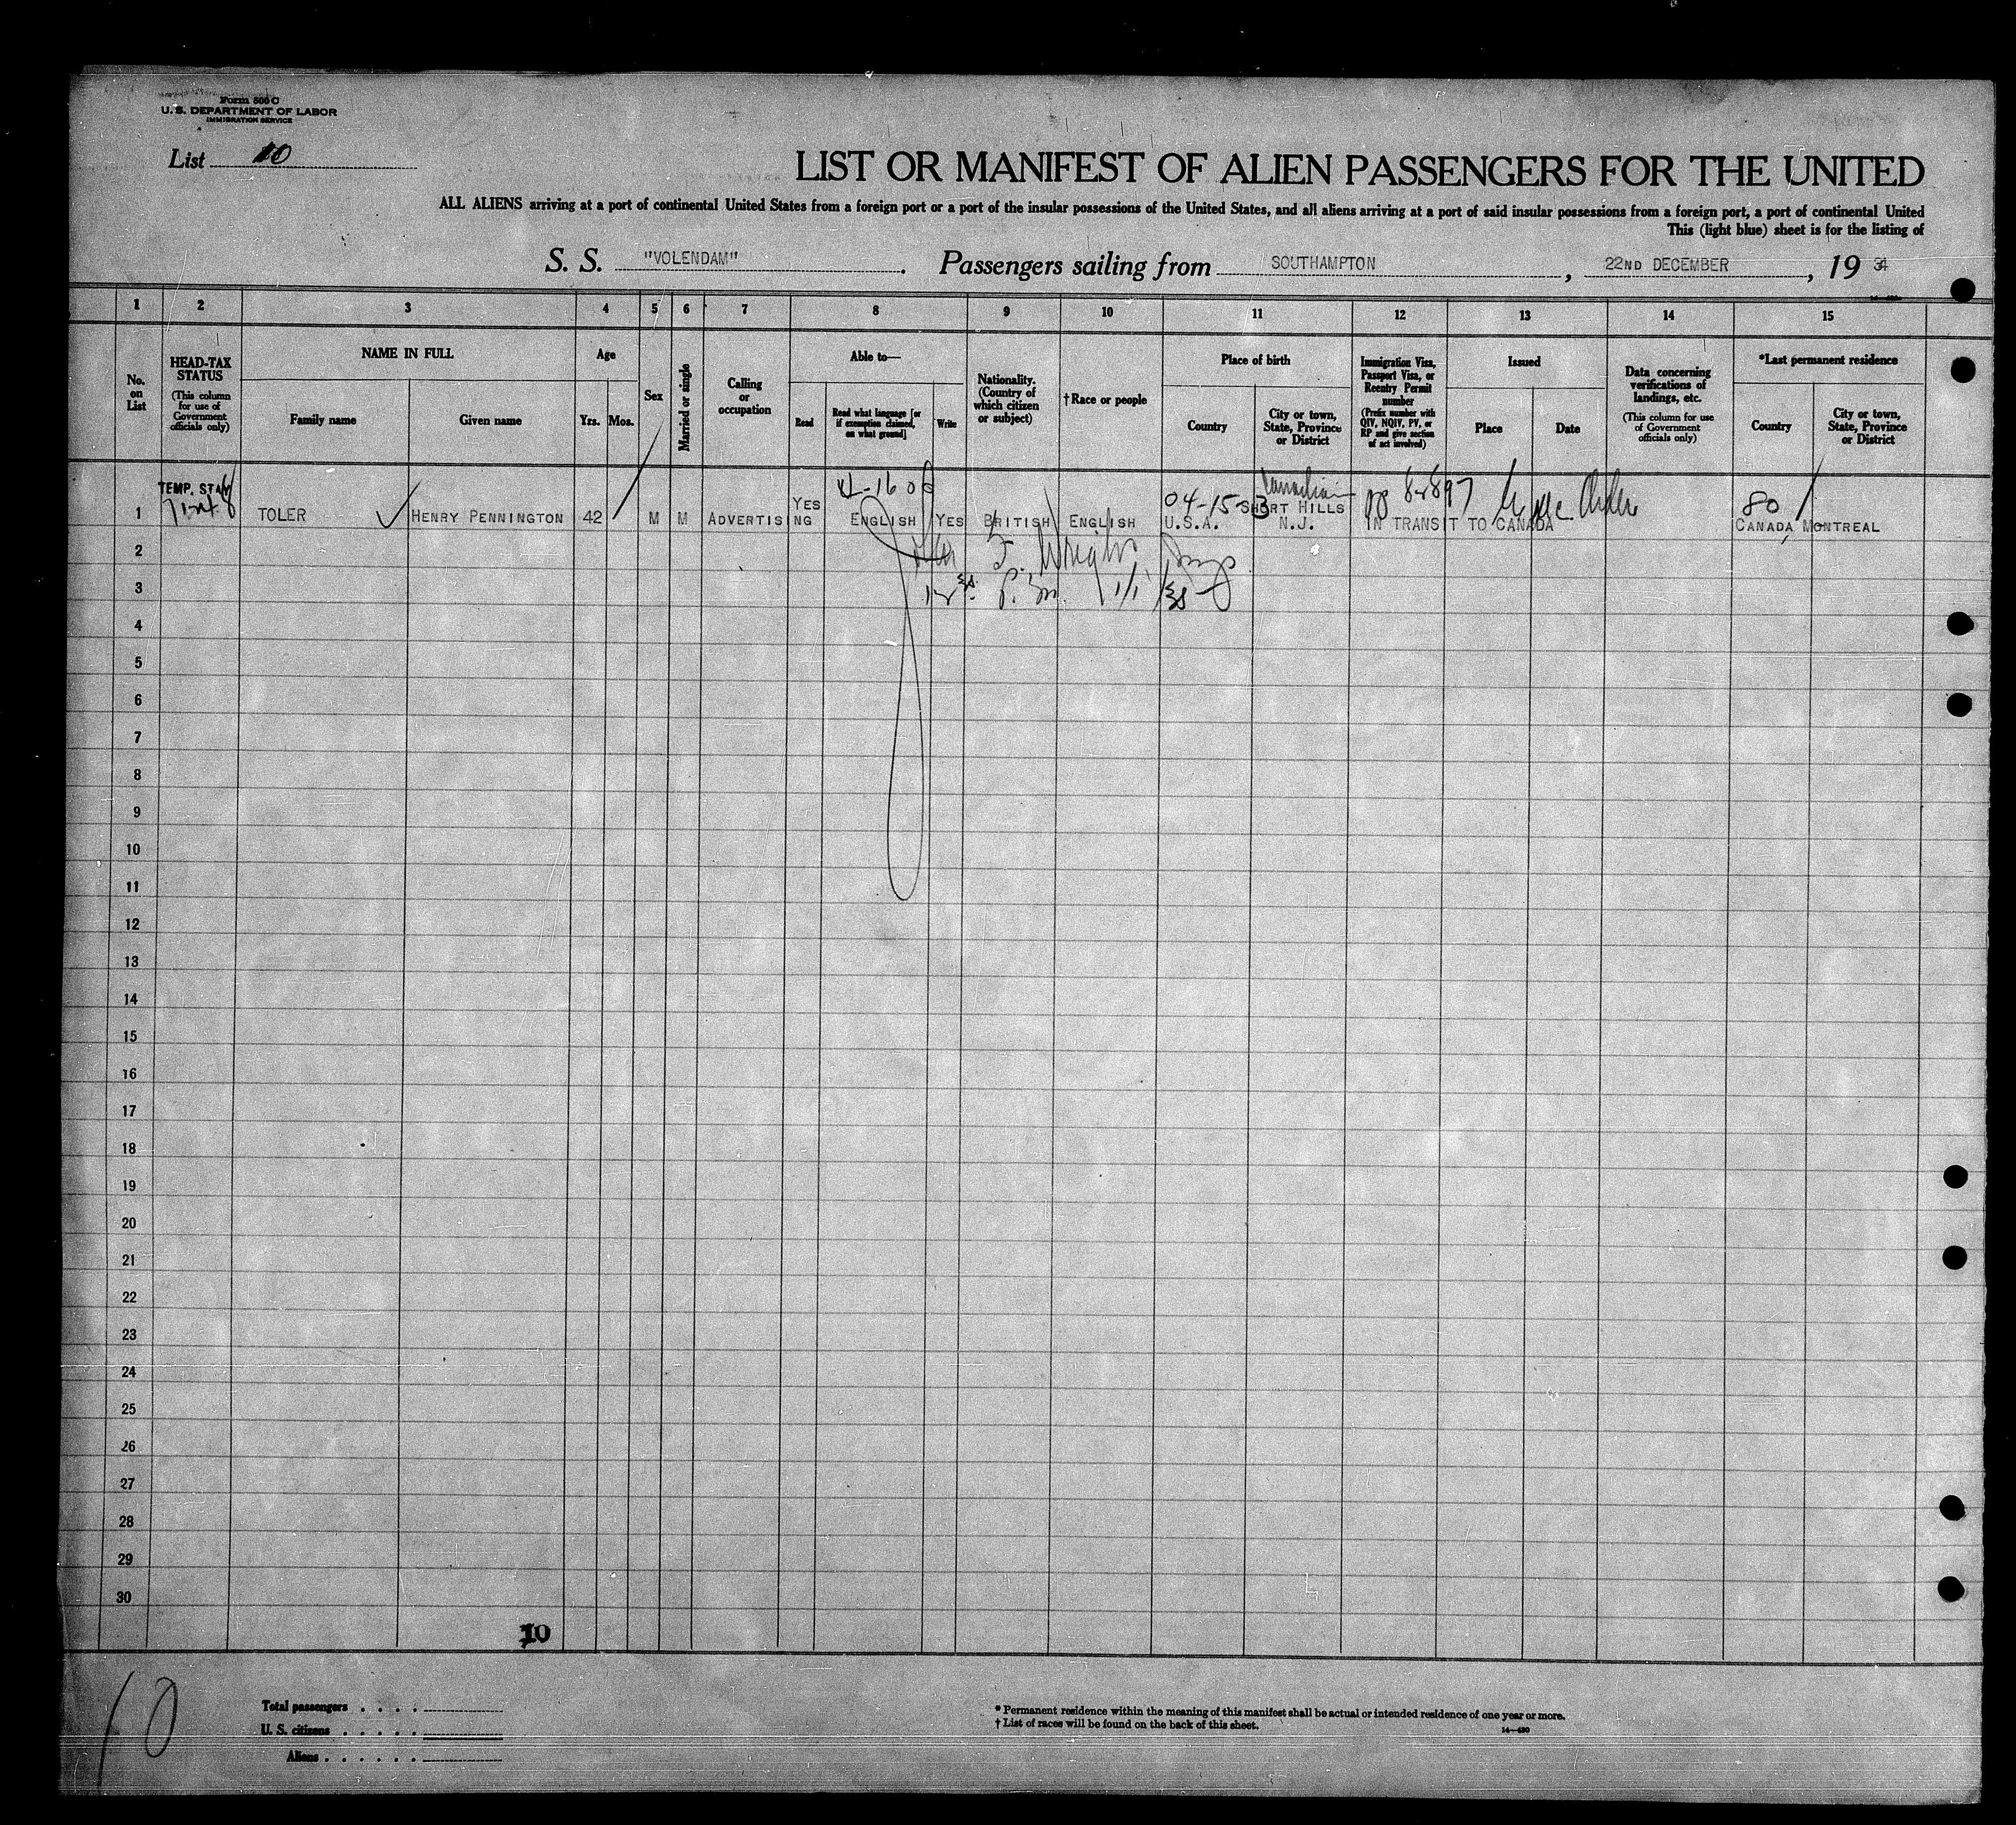 Form 500 C
U. S. DEPARTMENT OF LABOR
IMMIGRATION SERVICE
List 10
LIST OR MANIFEST OF ALIEN PASSENGERS FOR THE UNITED
ALL ALIENS arriving at a port of continental United States from a foreign port or a port of the insular possessions of the United States, and all aliens arriving at a port of said insular possessions from a foreign port, a port of continental United
This (light blue) sheet is for the listing of
S. S. "VOLENDAM". Passengers sailing from SOUTHAMPTON, 22ND DECEMBER, 19 34
1 2 3 4 5 6 7 8 9 10 11 12 13 14 15
No. on List
HEAD-TAX STATUS
(This column for use of Government officials only)
NAME IN FULL
Family name
Given name
Age
Yrs. Mos.
Sex
Married or single
Calling or occupation
Able to—
Read
Read what language [or if exemption claimed, on what ground]
Write
Nationality. (Country of which citizen or subject)
† Race or people
Place of birth
Country
City or town, State, Province or District
Immigration Visa, Passport Visa, or Reentry Permit number
(Prefix number with QIV, NQIV, PV, or RP and give section of act involved)
Issued
Place
Date
Data concerning verifications of landings, etc.
(This column for use of Government officials only)
*Last permanent residence
Country
City or town, State, Province or District
TEMP. STAY
04-15- Canadian 80
1 TOLER HENRY PENNINGTON 42 M M ADVERTISING YES ENGLISH YES BRITISH ENGLISH U.S.A. SHORT HILLS N.J. IN TRANSIT TO CANADA CANADA, MONTREAL
2 Wright
3 P. M. 1/1/35
4
5
6
7
8
9
10
11
12
13
14
15
16
17
18
19
20
21
22
23
24
25
26
27
28
29
30
10
10
Total passengers . . . .
U. S. citizens . . . . .
Aliens . . . . . .
* Permanent residence within the meaning of this manifest shall be actual or intended residence of one year or more.
† List of races will be found on the back of this sheet.
14—430